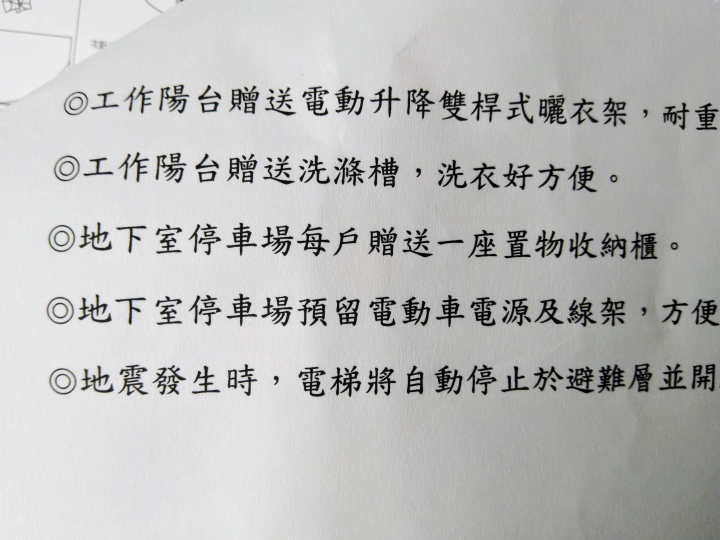 ◎工作陽台贈送電動升降雙桿式曬衣架，耐重
◎工作陽台贈送洗滌槽，洗衣好方便。
◎地下室停車場每戶贈送一座置物收納櫃。
◎地下室停車場預留電動車電源及線架，方便
◎地震發生時，電梯將自動停止於避難層並開